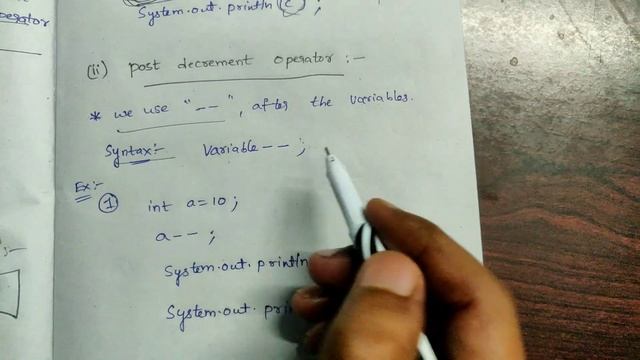 operator
System.out.println(c);
(ii) post decrement operator :-
* we use "--", after the variables.
Syntax:- Variable--;
Ex:-
① int a=10;
a--;
System.out.println
System.out.prin